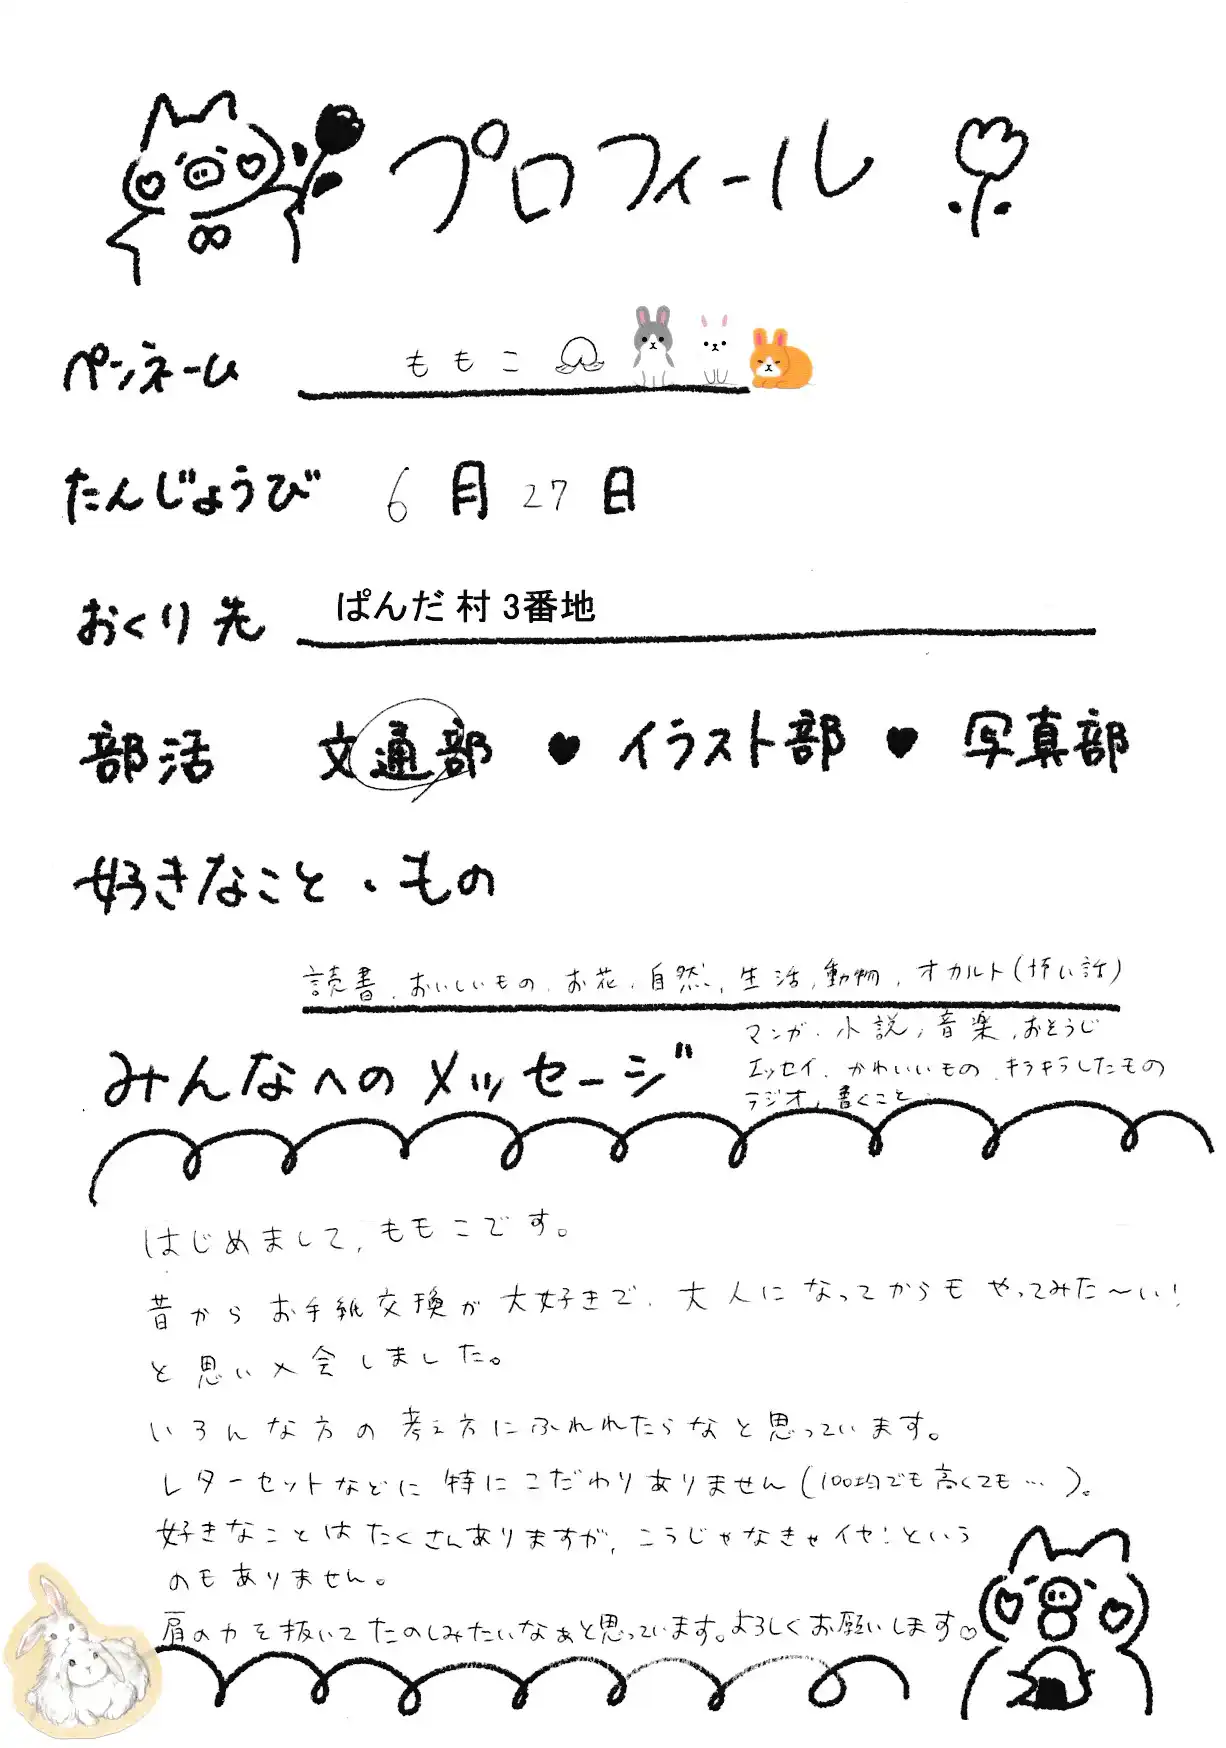 プロフィール
ペンネーム ももこ
たんじょうび 6月27日
おくり先 ぱんだ村 3番地
部活 文通部 ♥ イラスト部 ♥ 写真部
好きなこと・もの
読書、おいしいもの、お花、自然、生活、動物、オカルト(怖い話)
マンガ、小説、音楽、おそうじ
エッセイ、かわいいもの、キラキラしたもの
ラジオ、書くこと
みんなへのメッセージ
はじめまして、ももこです。
昔からお手紙交換が大好きで、大人になってからもやってみた〜い!
と思い入会しました。
いろんな方の考え方にふれれたらなと思っています。
レターセットなどに特にこだわりありません(100均でも高くても…)。
好きなことはたくさんありますが、こうじゃなきゃイヤ!という
のもありません。
肩の力を抜いてたのしみたいなぁと思っています。よろしくお願いします♡